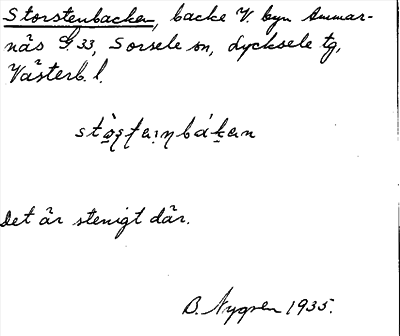 Storstenbacken, backe V. byn Ammar-
näs G. 33, Sorsele sn, Lycksele tg,
Västerb. l.
Det är stenigt där.
B. Nygren 1935.